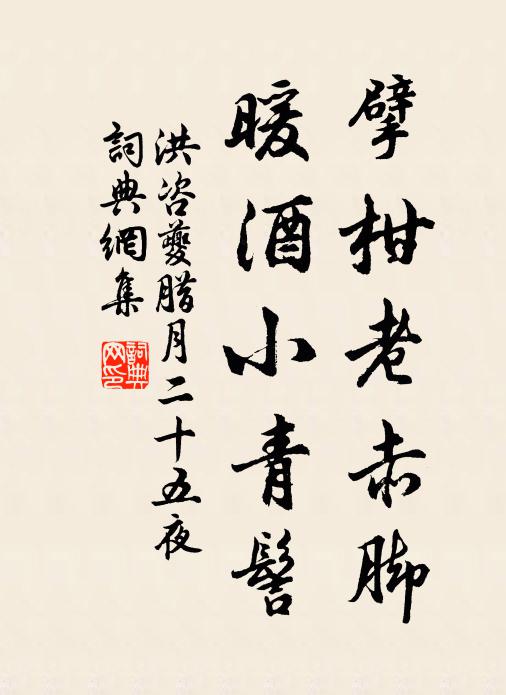 擘柑老赤脚
暖酒小青髻
洪咨夔臘月二十五夜
詞典網集
詞典网印